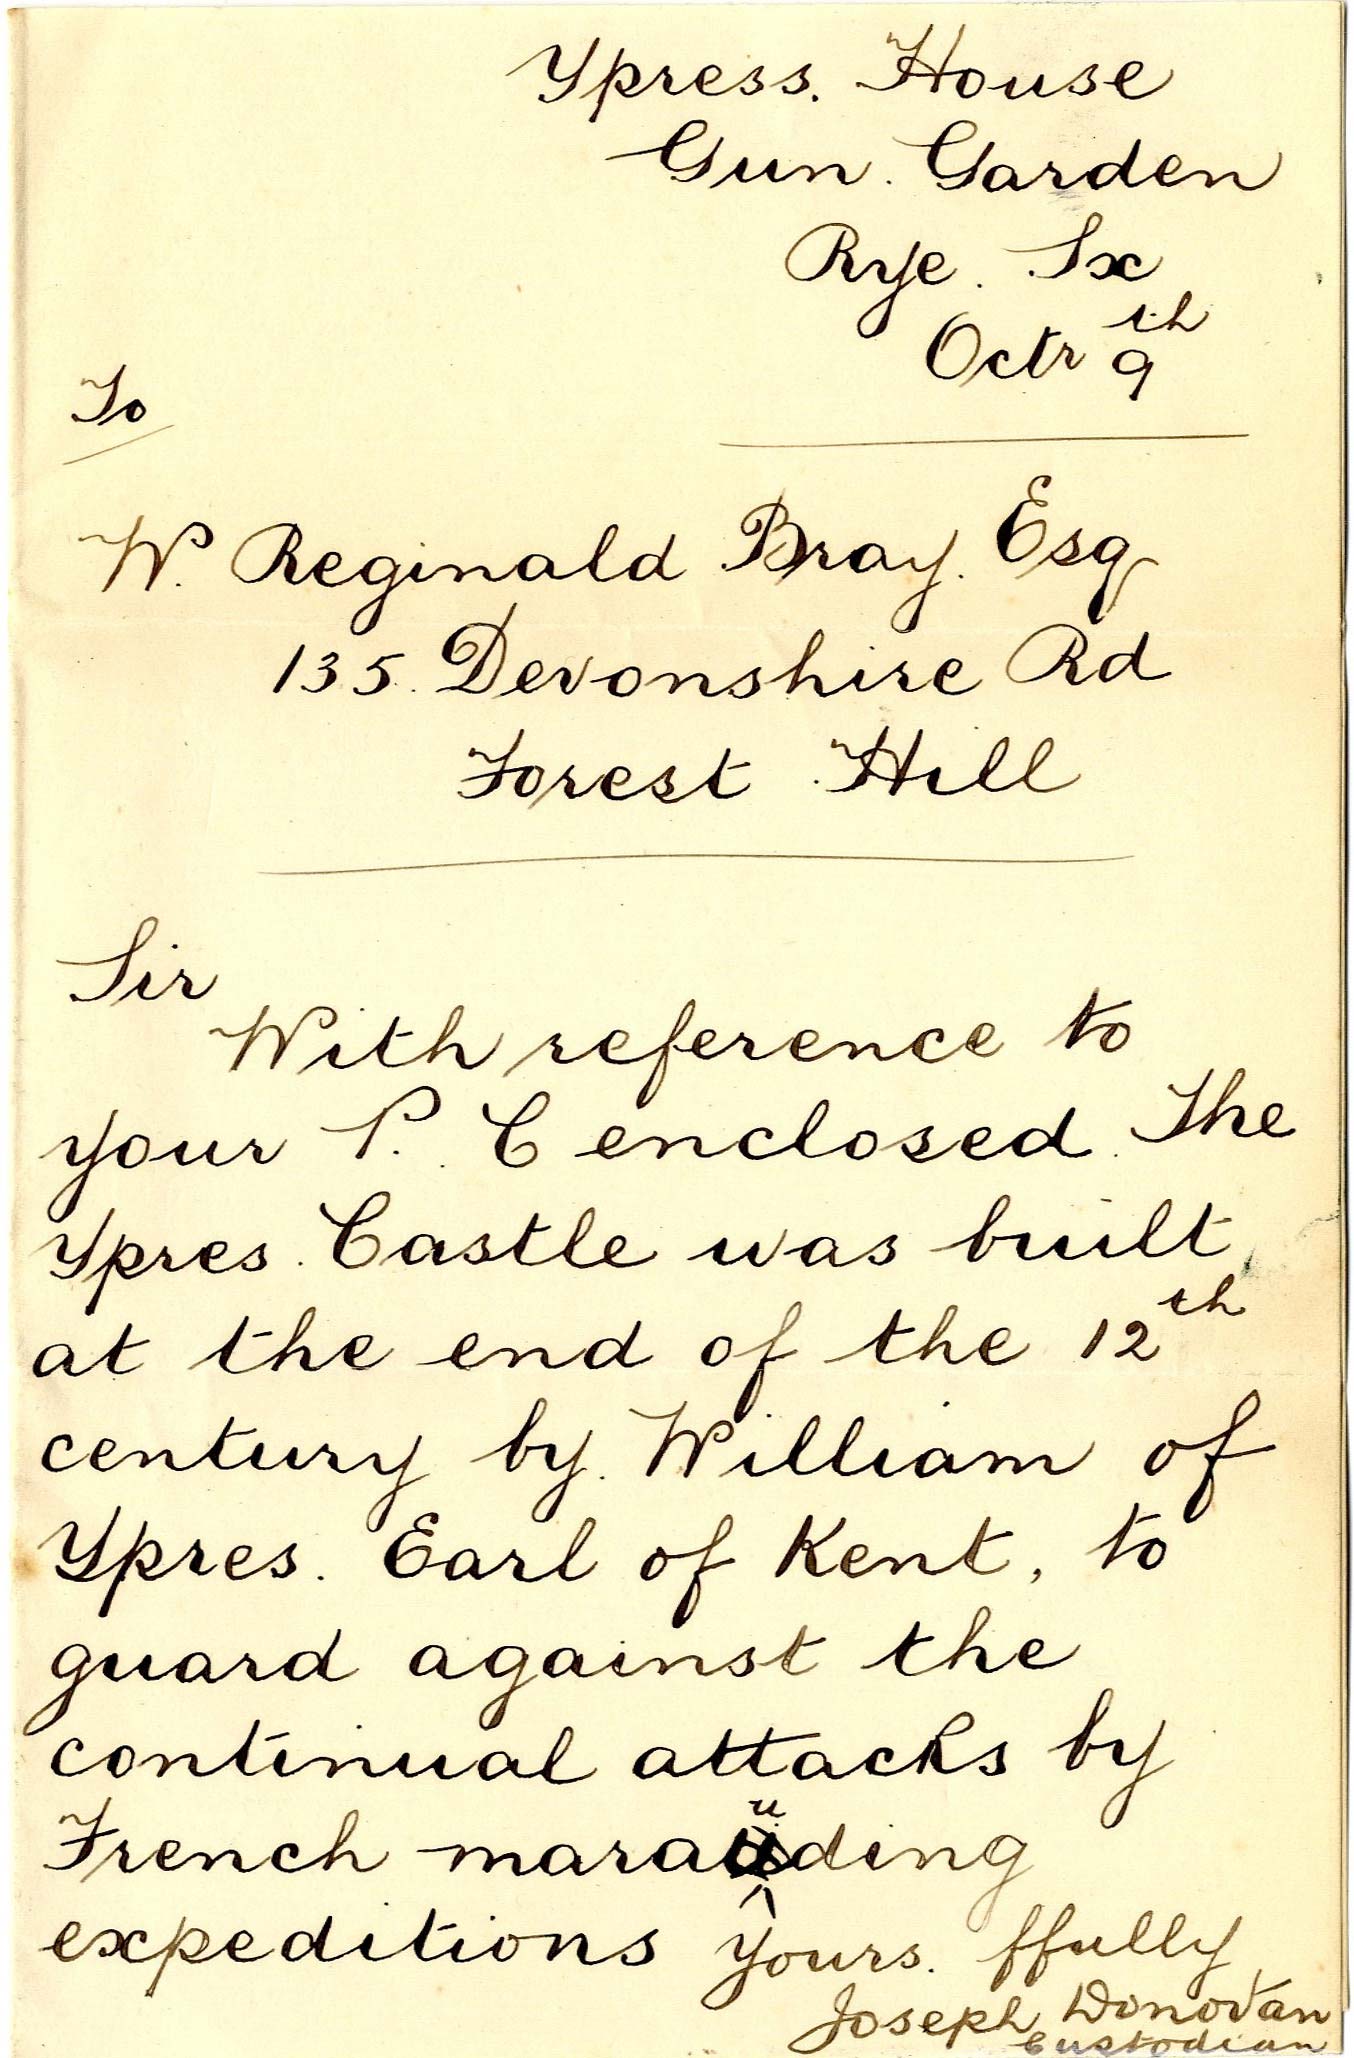 Ypress. House
Gun. Garden
Rye. Sx
Octr 9th
To
W. Reginald Bray. Esq
135. Devonshire Rd
Forest Hill
Sir
With reference to
your P. C enclosed. The
Ypres. Castle was built
at the end of the 12th
century by. William of
Ypres. Earl of Kent, to
guard against the
continual attacks by
French marauding
expeditions yours. ffully
Joseph Donovan
Custodian